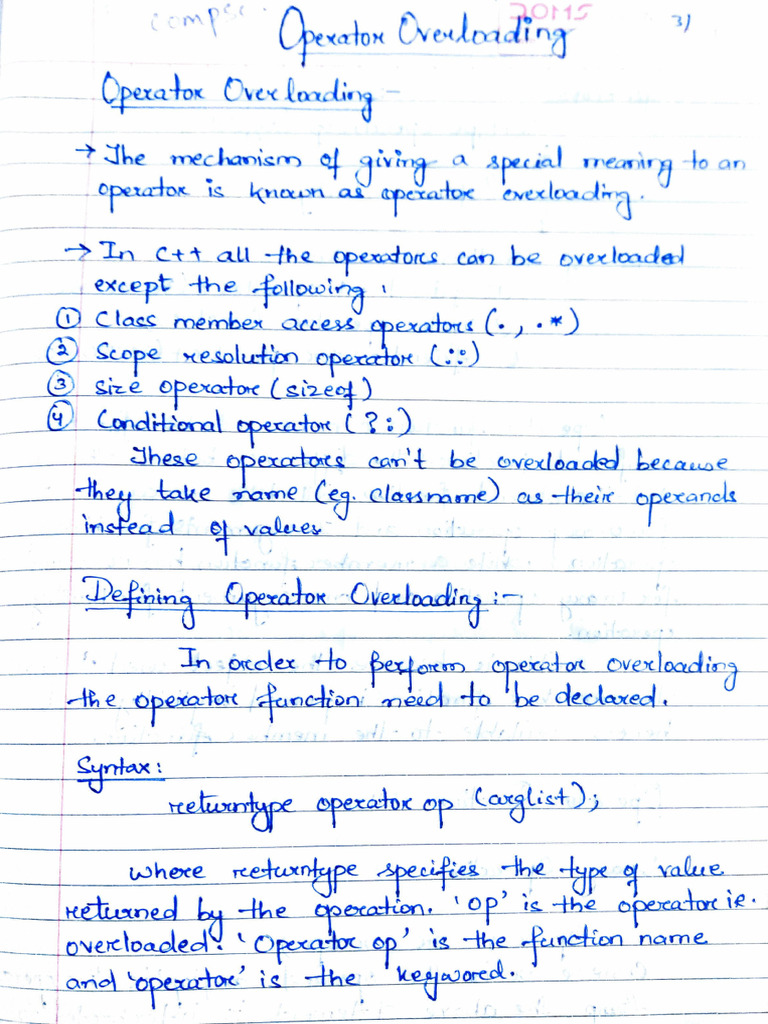 compsc 70115
Operator Overloading 3)
Operator Overloading -
→ The mechanism of giving a special meaning to an
operator is known as operator overloading.
→ In C++ all the operators can be overloaded
except the following :
① Class member access operators (. , .*)
② Scope resolution operator (::)
③ size operator (sizeof)
④ Conditional operator (?:)
These operators can't be overloaded because
they take name (eg. classname) as their operands
instead of values
Defining Operator Overloading :-
In order to perform operator overloading
the operator function need to be declared.
Syntax:
returntype operator op (arglist);
where returntype specifies the type of value
returned by the operation. 'op' is the operator ie.
overloaded. 'Operator op' is the function name
and 'operator' is the keyword.